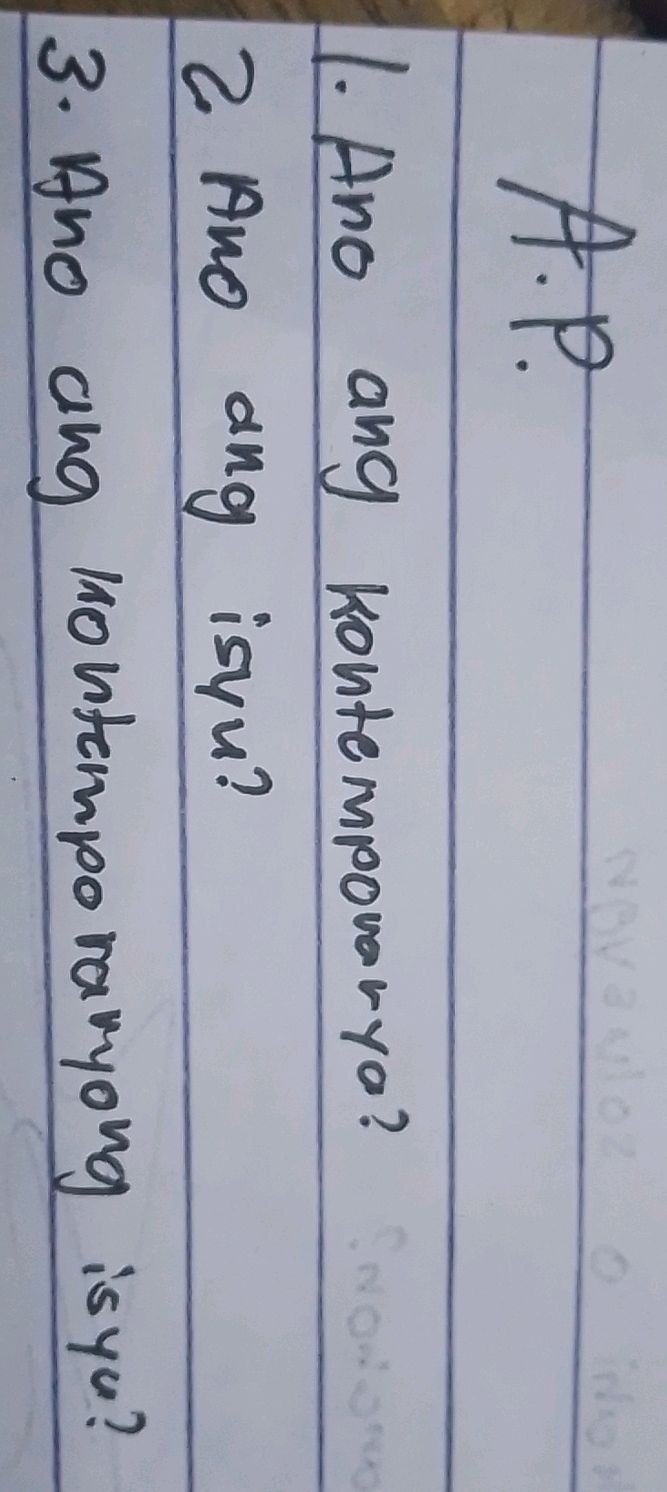 A.P.
1. Ano ang kontemporaryo?
2. Ano ang isyu?
3. Ano ang kontemporaryong isyu?